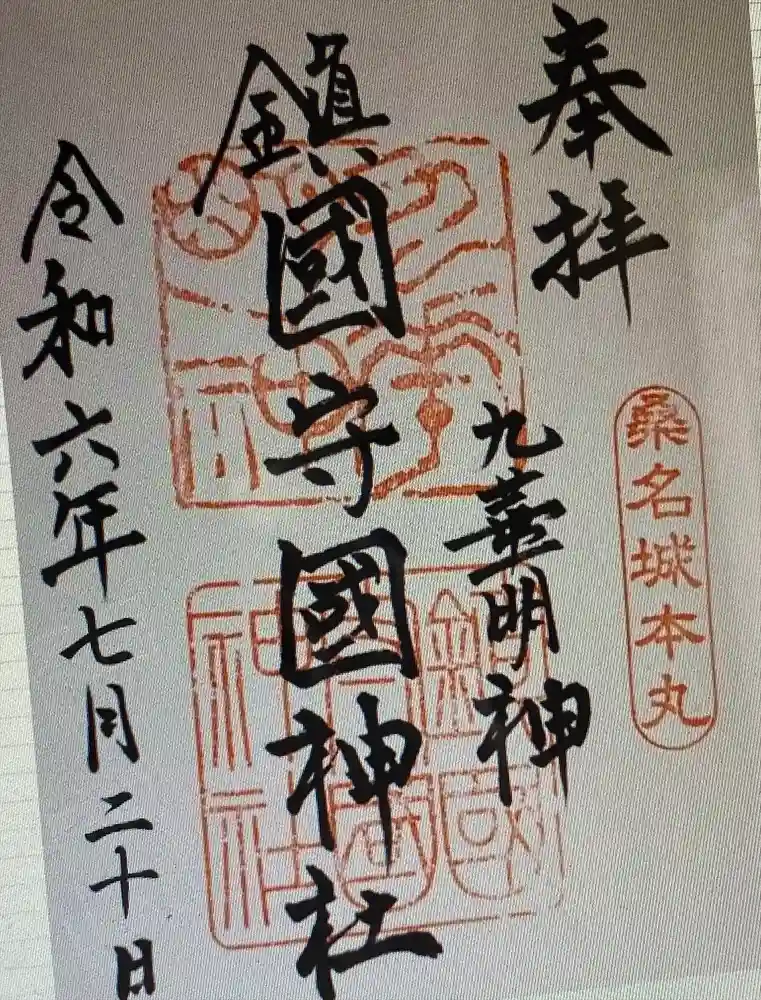 奉拝
桑名城本丸
九華明神
鎮國守國神社
令和六年七月二十日